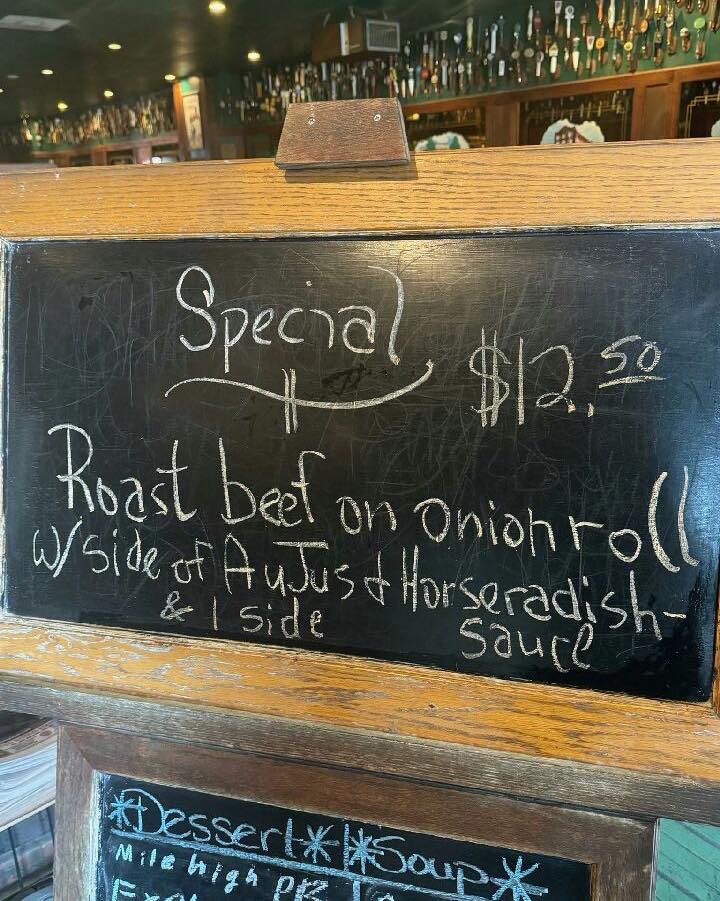 Special
$12.50
Roast beef on onion roll
w/ side of AuJus & Horseradish-
& 1 side sauce
*Dessert* *Soup*
Mile high PB